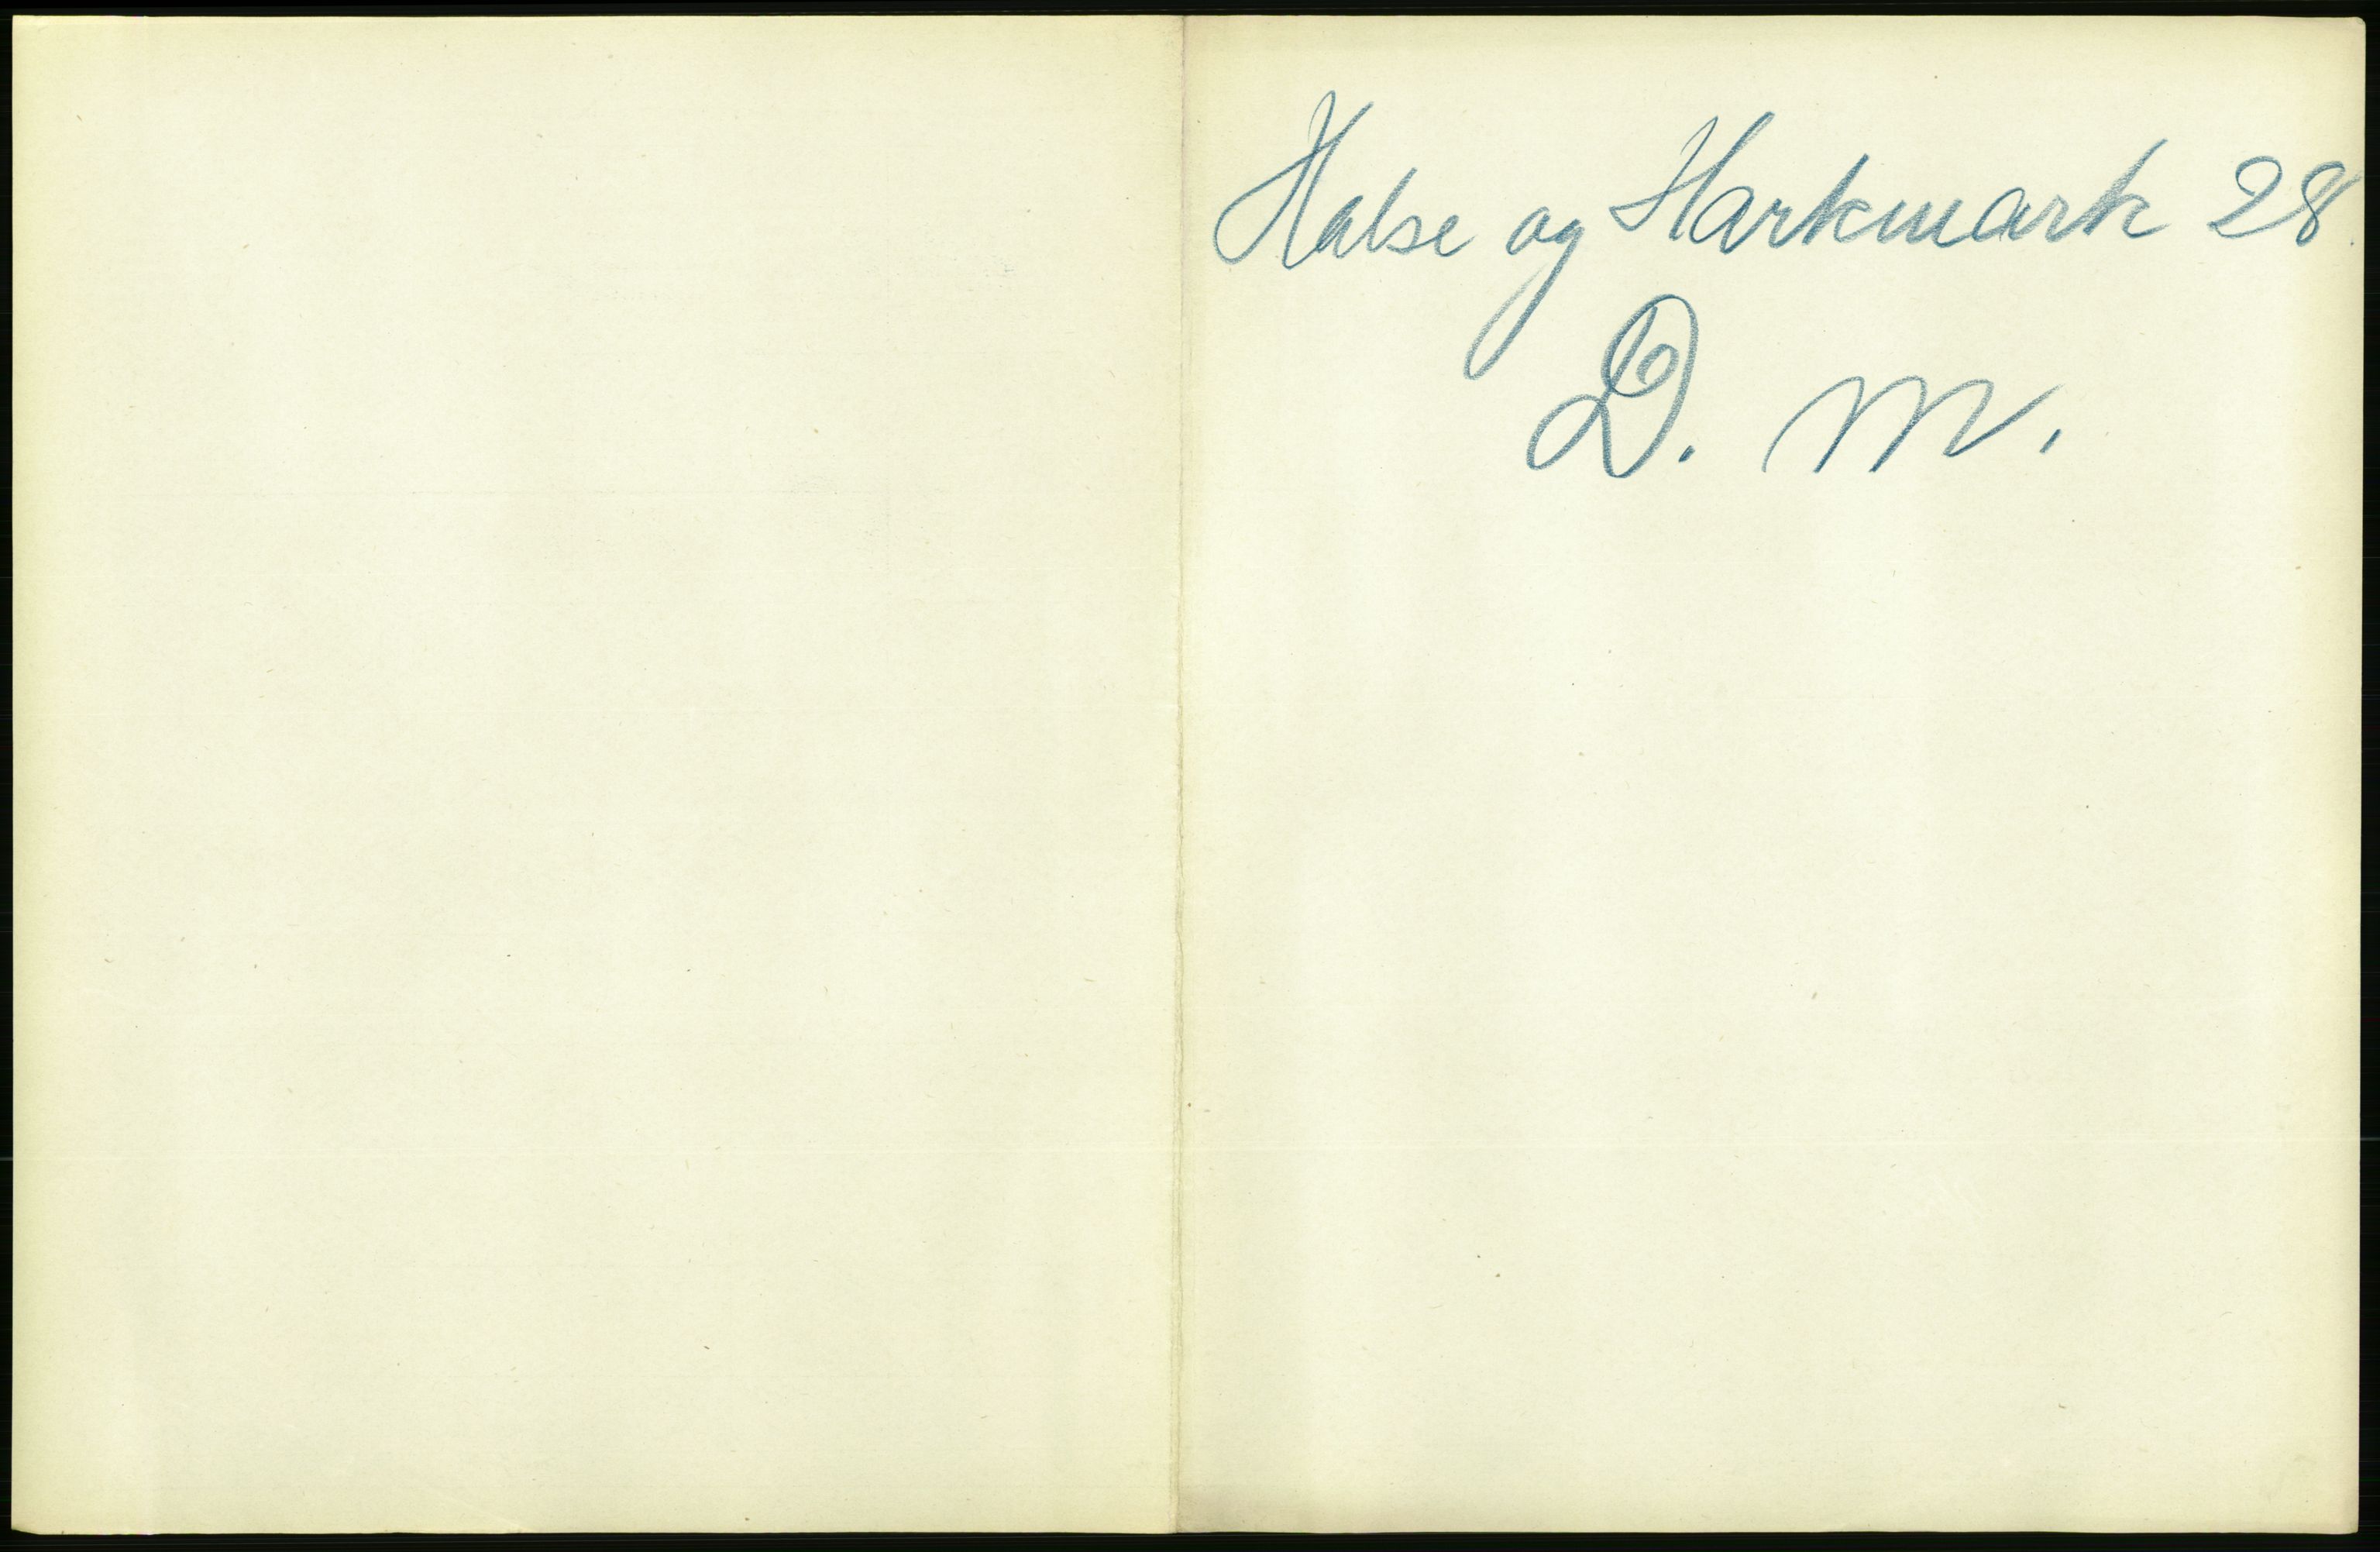 Halse og Harkmark 28
D. m.